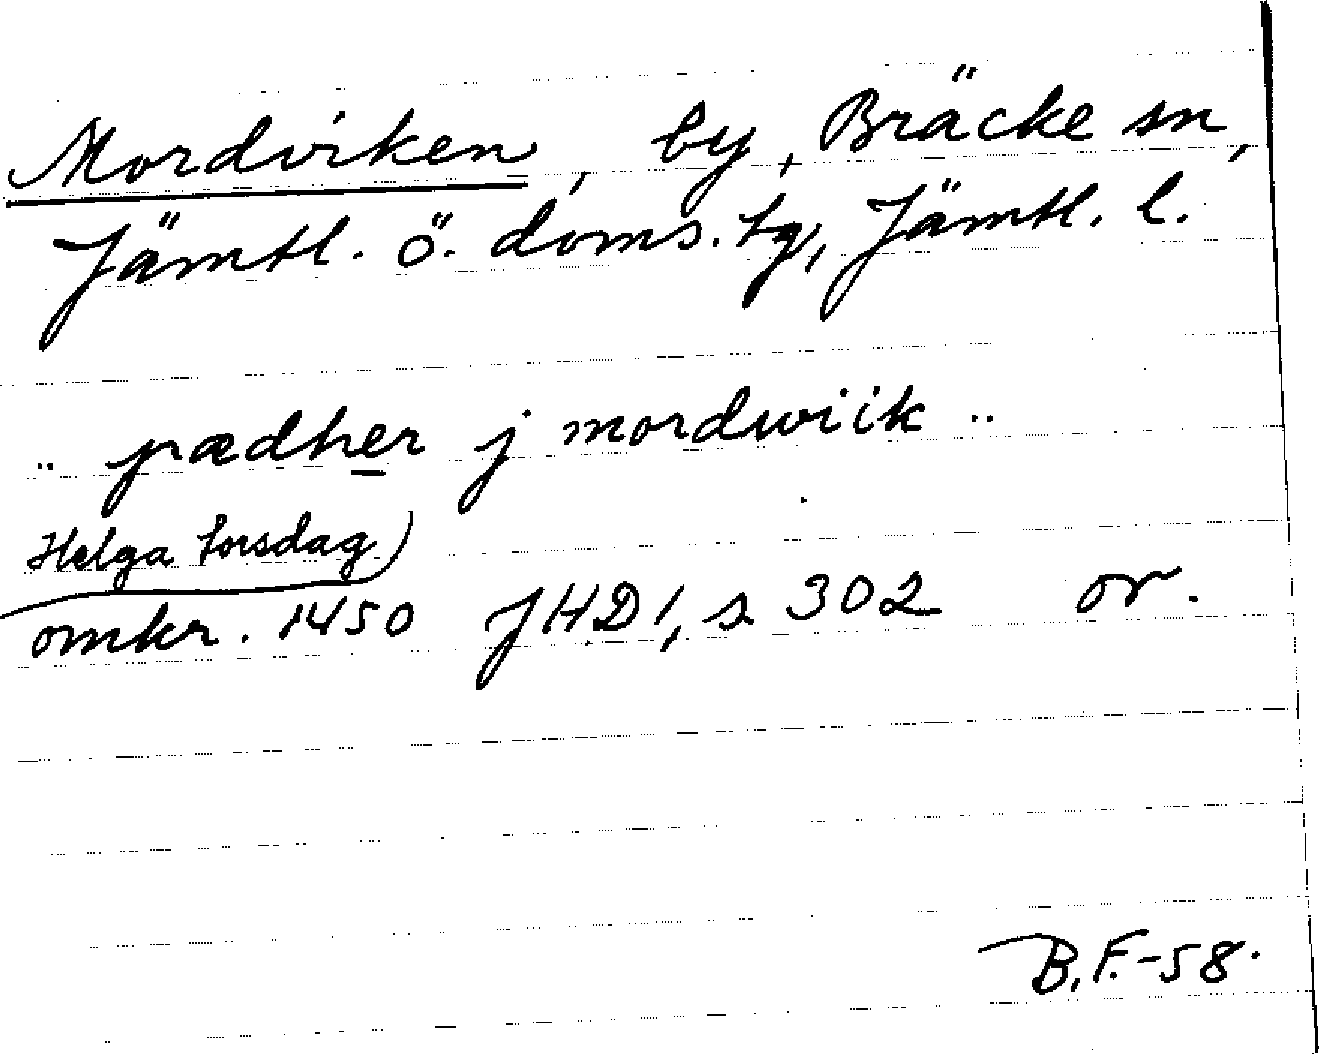 Mordviken, by, Bräcke sn,
Jämtl. ö. doms. tg, Jämtl. l.
.. pædher j mordwiik ..
Helga torsdag)
omkr. 1450 JHD 1, s 302 or.
B.F.-58.